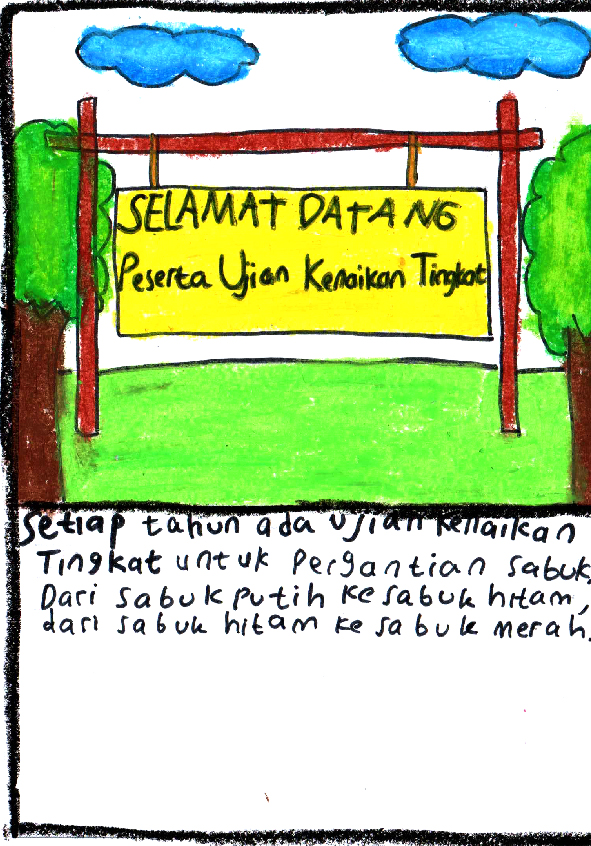 SELAMAT DATANG
Peserta Ujian Kenaikan Tingkat
Setiap tahun ada Ujian Kenaikan
Tingkat untuk Pergantian sabuk.
Dari sabuk putih ke sabuk hitam,
dari sabuk hitam ke sabuk merah.